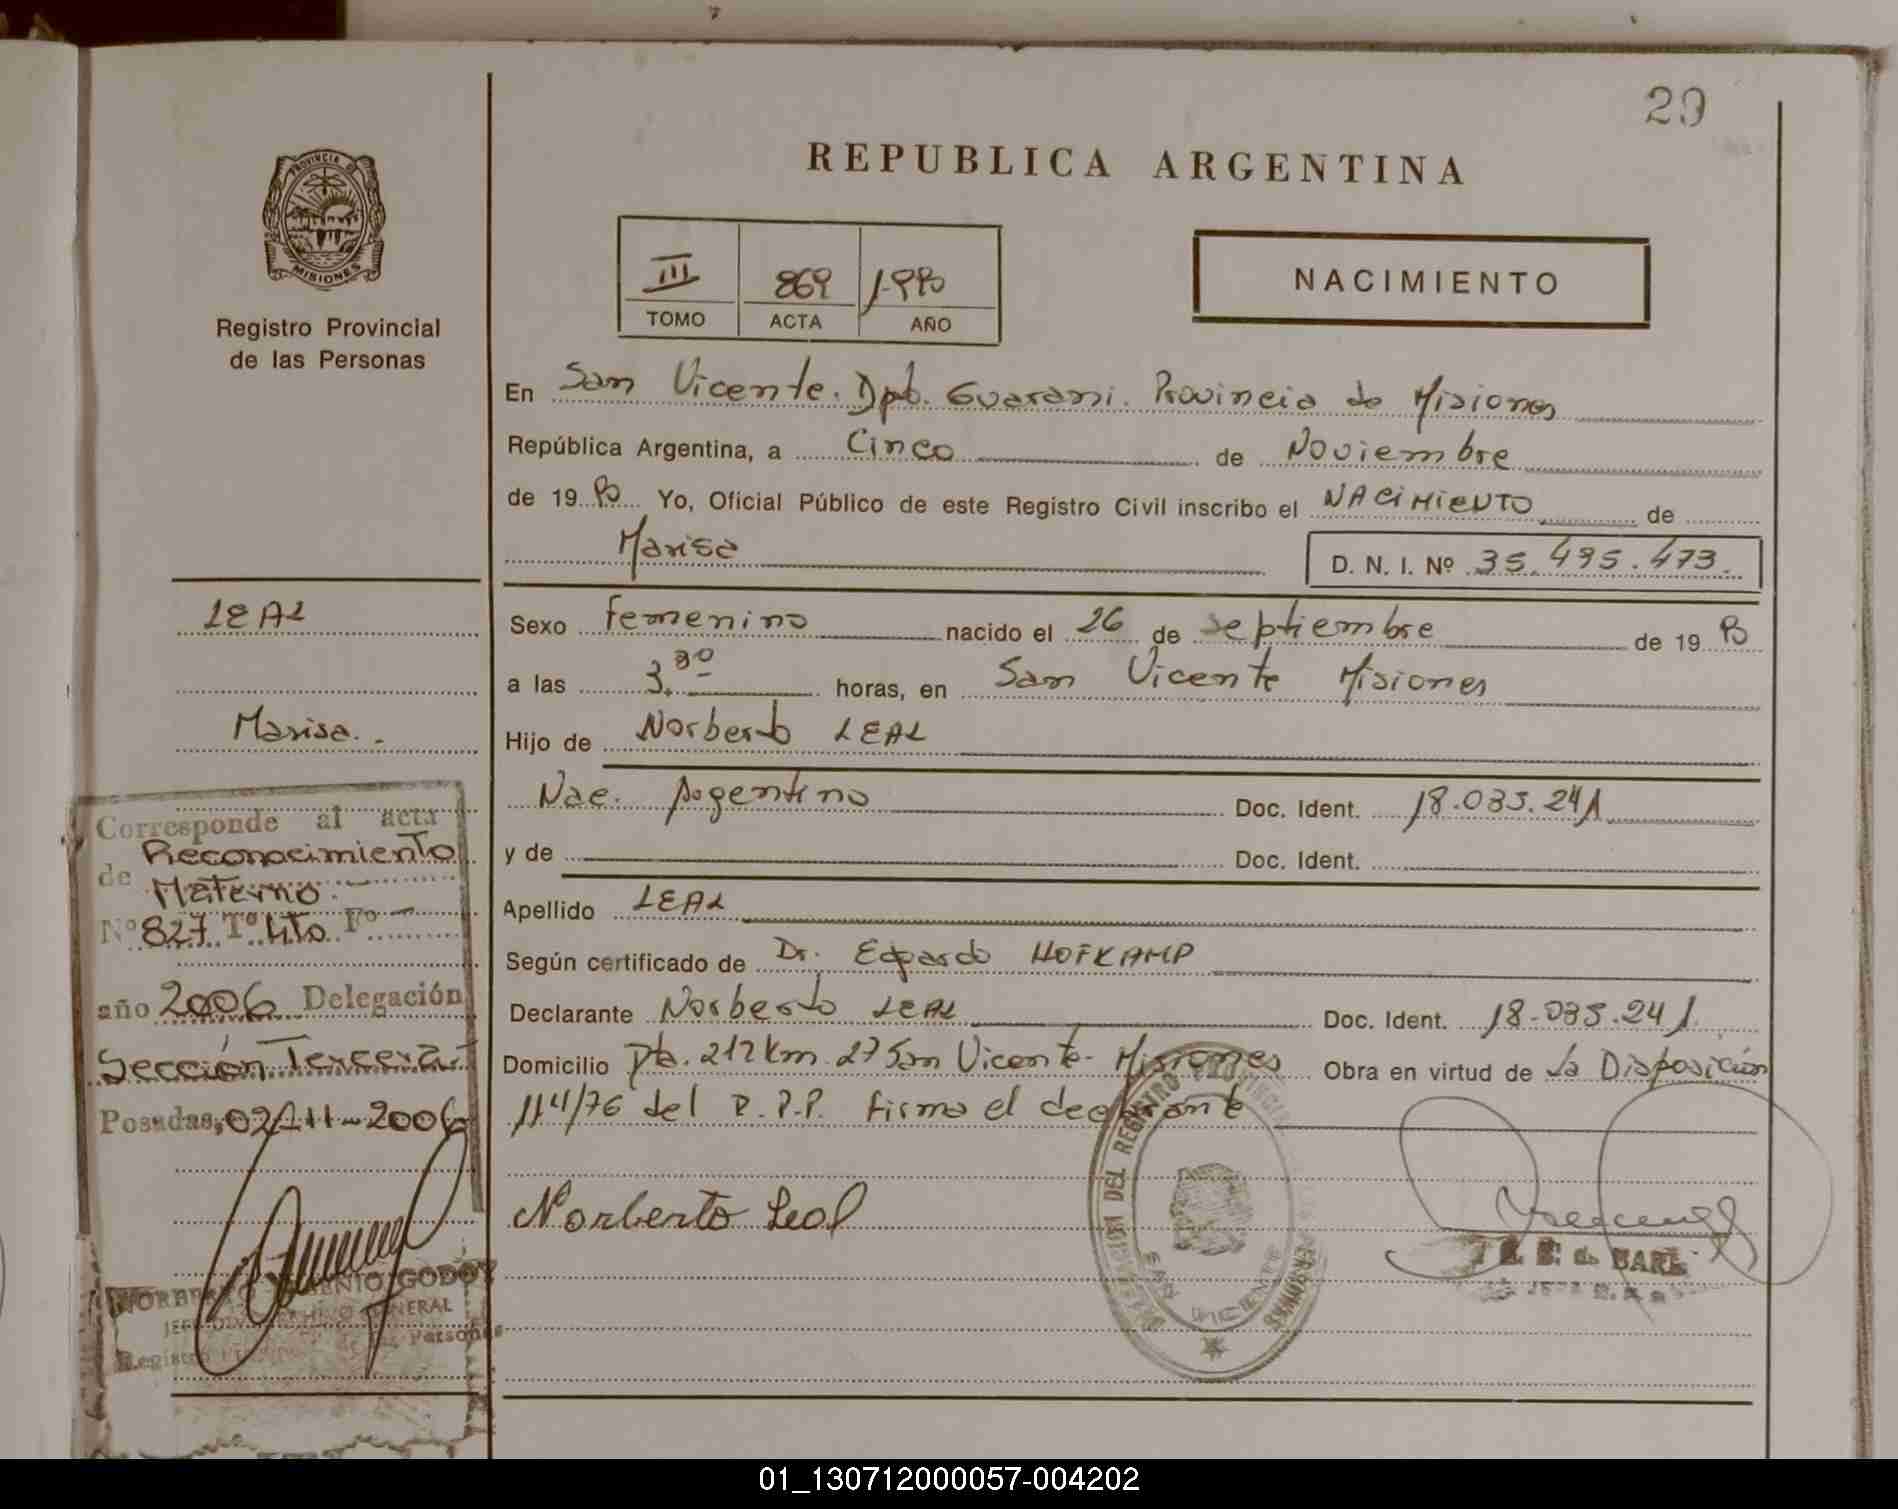 29
REPUBLICA ARGENTINA
PROVINCIA DE
MISIONES
Registro Provincial
de las Personas
III 869 1.990
TOMO ACTA AÑO
NACIMIENTO
En San Vicente. Dpto. Guarani. Provincia de Misiones
República Argentina, a Cinco de Noviembre
de 19 90 Yo, Oficial Público de este Registro Civil inscribo el NACIMIENTO de
Marisa
D. N. I. Nº 35.495.473.
LEAL
Marisa.
Sexo Femenino nacido el 26 de Septiembre de 19 90
a las 3.30 horas, en San Vicente Misiones
Hijo de Norberto LEAL
Nac. Argentino Doc. Ident. 18.035.241
y de Doc. Ident.
Apellido LEAL
Según certificado de Dr. Edgardo HOFKAMP
Declarante Norberto LEAL Doc. Ident. 18.035.241
Domicilio Pta. 212 km 27 San Vicente - Misiones Obra en virtud de La Disposición
114/76 del R.P.P. Firma el declarante
Norberto Leal
Corresponde al acta
de Reconocimiento
Materno.
Nº 827 Tº 4to Fº
año 2006 Delegación
Sección Tercera
Posadas, 02-11-2006
GODOY
DEL REGISTRO
SAN VICENTE
01_130712000057-004202